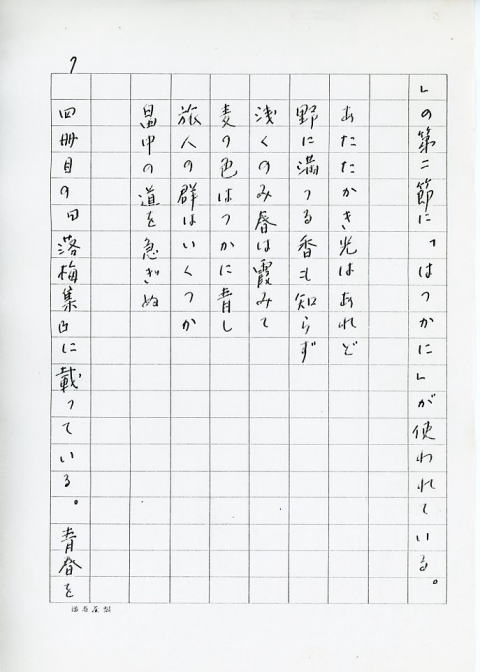 7
」の第二節に「はつかに」が使われている。
あたたかき光はあれど
野に満つる香も知らず
浅くのみ春は霞みて
麦の色はつかに青し
旅人の群はいくつか
畠中の道を急ぎぬ
四冊目の『落梅集』に載っている。青春を
満寿屋製